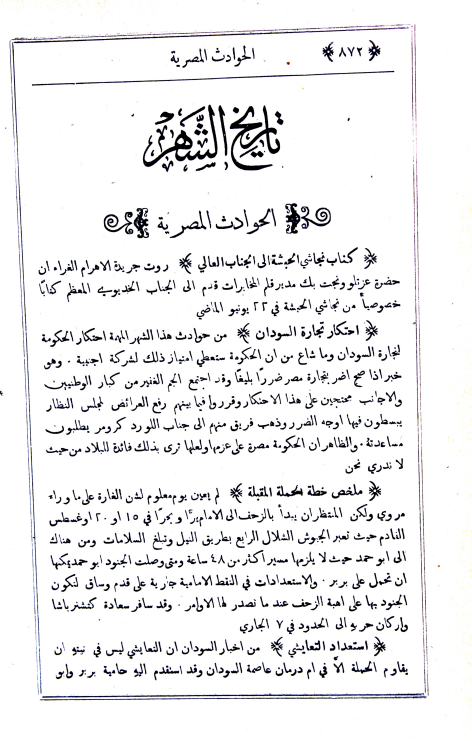 ﴿ ٨٧٢ ﴾ الحوادث المصرية
تاريخ الشهر
الحوادث المصرية
﴿ كتاب نجاشي الحبشة الى الجناب العالي ﴾ روت جريدة الاهرام الغراء ان
حضرة عزتلو ونجت بك مدير قلم المخابرات قدم الى الجناب الخديوي المعظم كتابًا
خصوصيًا من نجاشي الحبشة في ٢٢ يونيو الماضي
﴿ احتكار تجارة السودان ﴾ من حوادث هذا الشهر المهمة احتكار الحكومة
لتجارة السودان وما شاع من ان الحكومة ستعطي امتياز ذلك لشركة اجنبية . وهو
خبر اذا صح اضر بتجارة مصر ضررًا بليغًا وقد اجتمع الجم الغفير من كبار الوطنيين
والاجانب محتجين على هذا الاحتكار وقرروا فيما بينهم رفع العرائض لمجلس النظار
يبسطون فيها اوجه الضرر وذهب فريق منهم الى جناب اللورد كرومر يطلبون
مساعدته . والظاهر ان الحكومة مصرة على عزمها ولعلها ترى بذلك فائدة للبلاد من حيث
لا ندري نحن
﴿ ملخص خطة الحملة المقبلة ﴾ لم يعين يوم معلوم لشن الغارة على ما وراء
مروي ولكن المنتظر ان يبدأ بالزحف الى الامام برًّا وبحرًا في ١٥ او ٢٠ اوغسطس
القادم حيث تعبر الجيوش الشلال الرابع بطريق النيل وتبلغ السلامات ومن هناك
الى ابو حمد حيث لا يلزمها مسير اكثر من ٤٨ ساعة ومتى وصلت الجنود ابو حمد يمكنها
ان تحمل على بربر . والاستعدادات في النقط الامامية جارية على قدم وساق لتكون
الجنود بها على اهبة الزحف عند ما تصدر لها الاوامر . وقد سافر سعادة كتشنر باشا
واركان حربه الى الحدود في ٧ الجاري
﴿ استعداد التعايشي ﴾ من اخبار السودان ان التعايشي ليس في نيته ان
يقاوم الحملة الاّ في ام درمان عاصمة السودان وقد استقدم اليه حامية بربر وابو